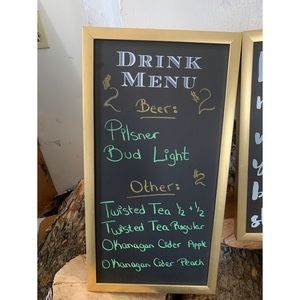 DRINK
MENU
2 Beer: 2
Pilsner
Bud Light
Other: 2
Twisted Tea ½ + ½
Twisted Tea Regular
Okanagan Cider Apple
Okanagan Cider Peach